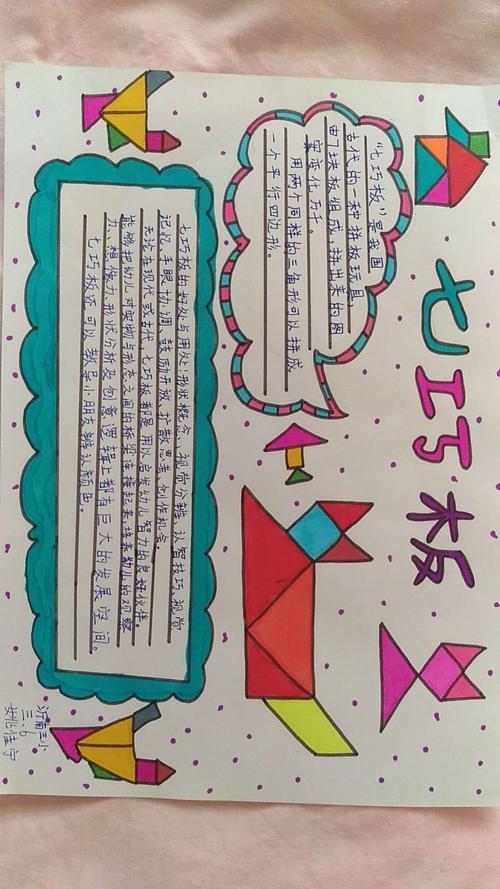 七巧板
“七巧板”是我国
古代的一种拼板玩具,
由7块板组成,拼出来的图
案变化万千。
用两个同样的三角形可以拼成
一个平行四边形。
七巧板的好处与用处:形状概念、视觉分辨、认智技巧、视觉
记忆、手眼协调、鼓励开放、扩散思考、创作机会。
无论在现代或古代,七巧板都是用以启发幼儿智力的良好伙伴。
能够把幼儿对实物与形态之间的桥梁连接起来,培养幼儿的观察
力、想像力、形状分析及创意逻辑上都有巨大的发展空间。
七巧板还可以教导小朋友辨认颜色。
三、6